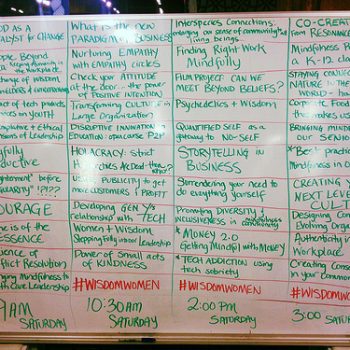 OD AS A
ATALYST FOR CHANGE
ople Beyond
Keeping in Humanity
change of Wisdom
act of tech products
ences on YOUTH
mplative + Ethical
hfully
ductive
ghtenment" before
ularity" !?!??
OURAGE
me is of the
ESSENCE
ience of
flict Resolution
lying Mindfulness to
tive Leadership
9AM
SATURDAY
What is the new
PARADIGM in BUSINESS
Nurturing EMPATHY
with EMPATHY circles
Check your ATTITUDE
at the door - the power
of POSITIVE INTENTION
Transforming CULTURE in
Large Organizations
DISRUPTIVE INNOVATION in
Education
HOLACRACY: Strict
Hierarchies are Dead - then
Use PUBLICITY to get
more customers & PROFIT
Developing GEN Y's
relationship with TECH
Women + Wisdom
Stepping fully into our Leadership
Power of small acts
of KINDNESS
#WISDOMWOMEN
10:30AM
SATURDAY
Interspecies Connections:
emerging our sense of community w/ all
living beings
Finding Right Work
Mindfully
FILM PROJECT: CAN WE
MEET BEYOND BELIEFS?
Psychedelics + Wisdom
QUANTIFIED SELF as a
gateway to NO-SELF
STORYTELLING in
BUSINESS
Surrendering your need to
do everything yourself
Promoting DIVERSITY &
INCLUSIVENESS in
* MONEY 2.0
Getting Mindful with Money
* TECH ADDICTION using
tech sobriety
#WISDOMWOMEN
2:00 PM
SATURDAY
CO-CREAT
from RESONANCE
Mindfulness Pr
a K-12 clas
STAYING CONNEC
NATURE in the
WORLD
Corporate Food
that makes us
BRINGING MINDFU
our SENIO
*Best practic
Mindfulness in O
CREATING Y
NEXT LEVEL
CULT
Designing Con
Evolving Organ
Authenticity in
Workplace
Creating Conse
in your Commun
#WISDOMWOM
3:00
SATURD